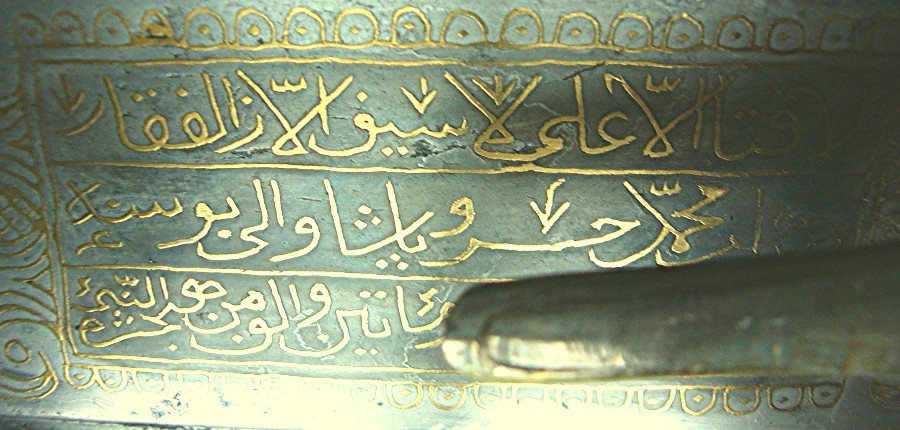 لا فتا الا علي لا سيف الا ذالفقار
محمد خسرو پاشا والى بوسنه
مأتين والف من هجرة النبى